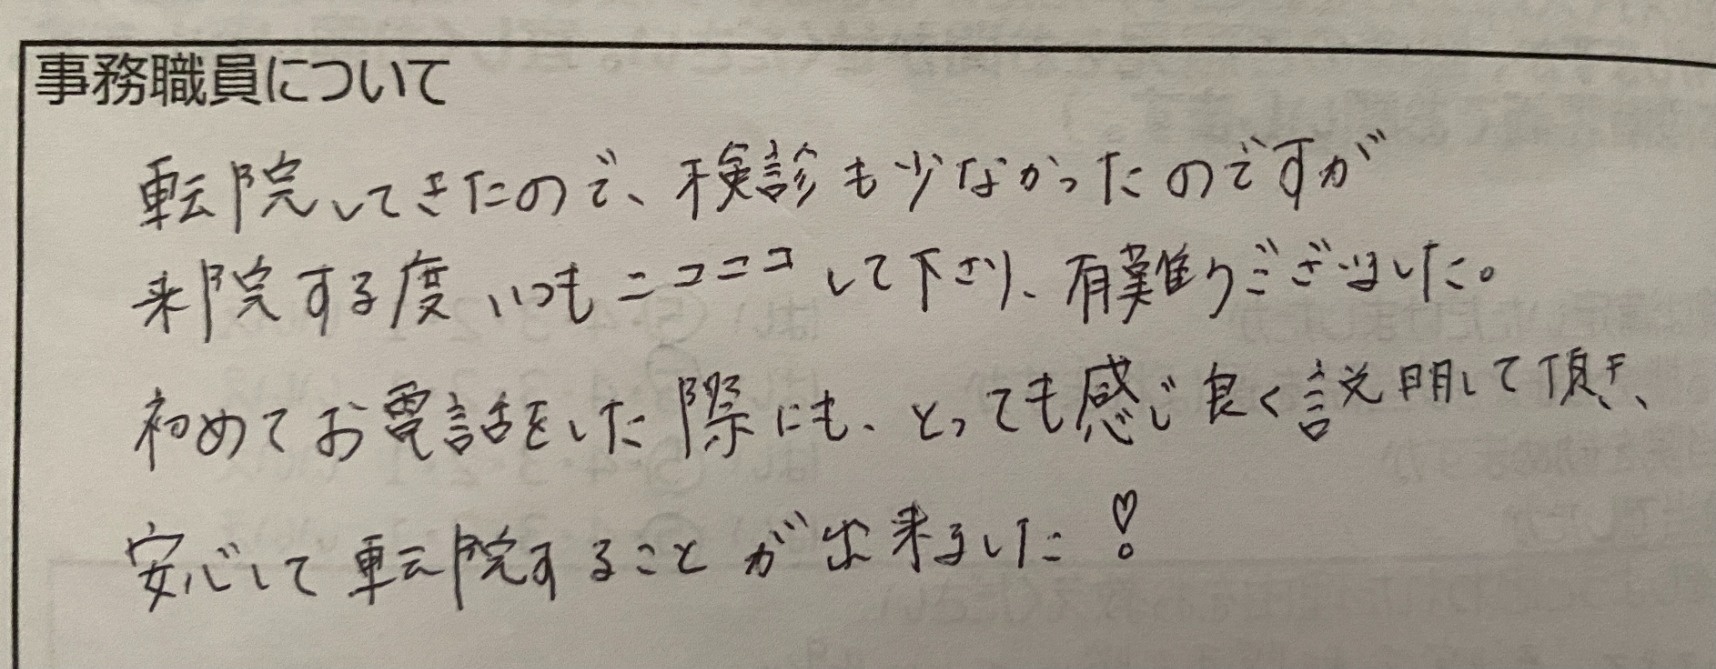 事務職員について
転院してきたので、検診も少なかったのですが
来院する度、いつもニコニコして下さり、有難うございました。
初めてお電話をした際にも、とっても感じ良く説明して頂き、
安心して転院することが出来ました♡